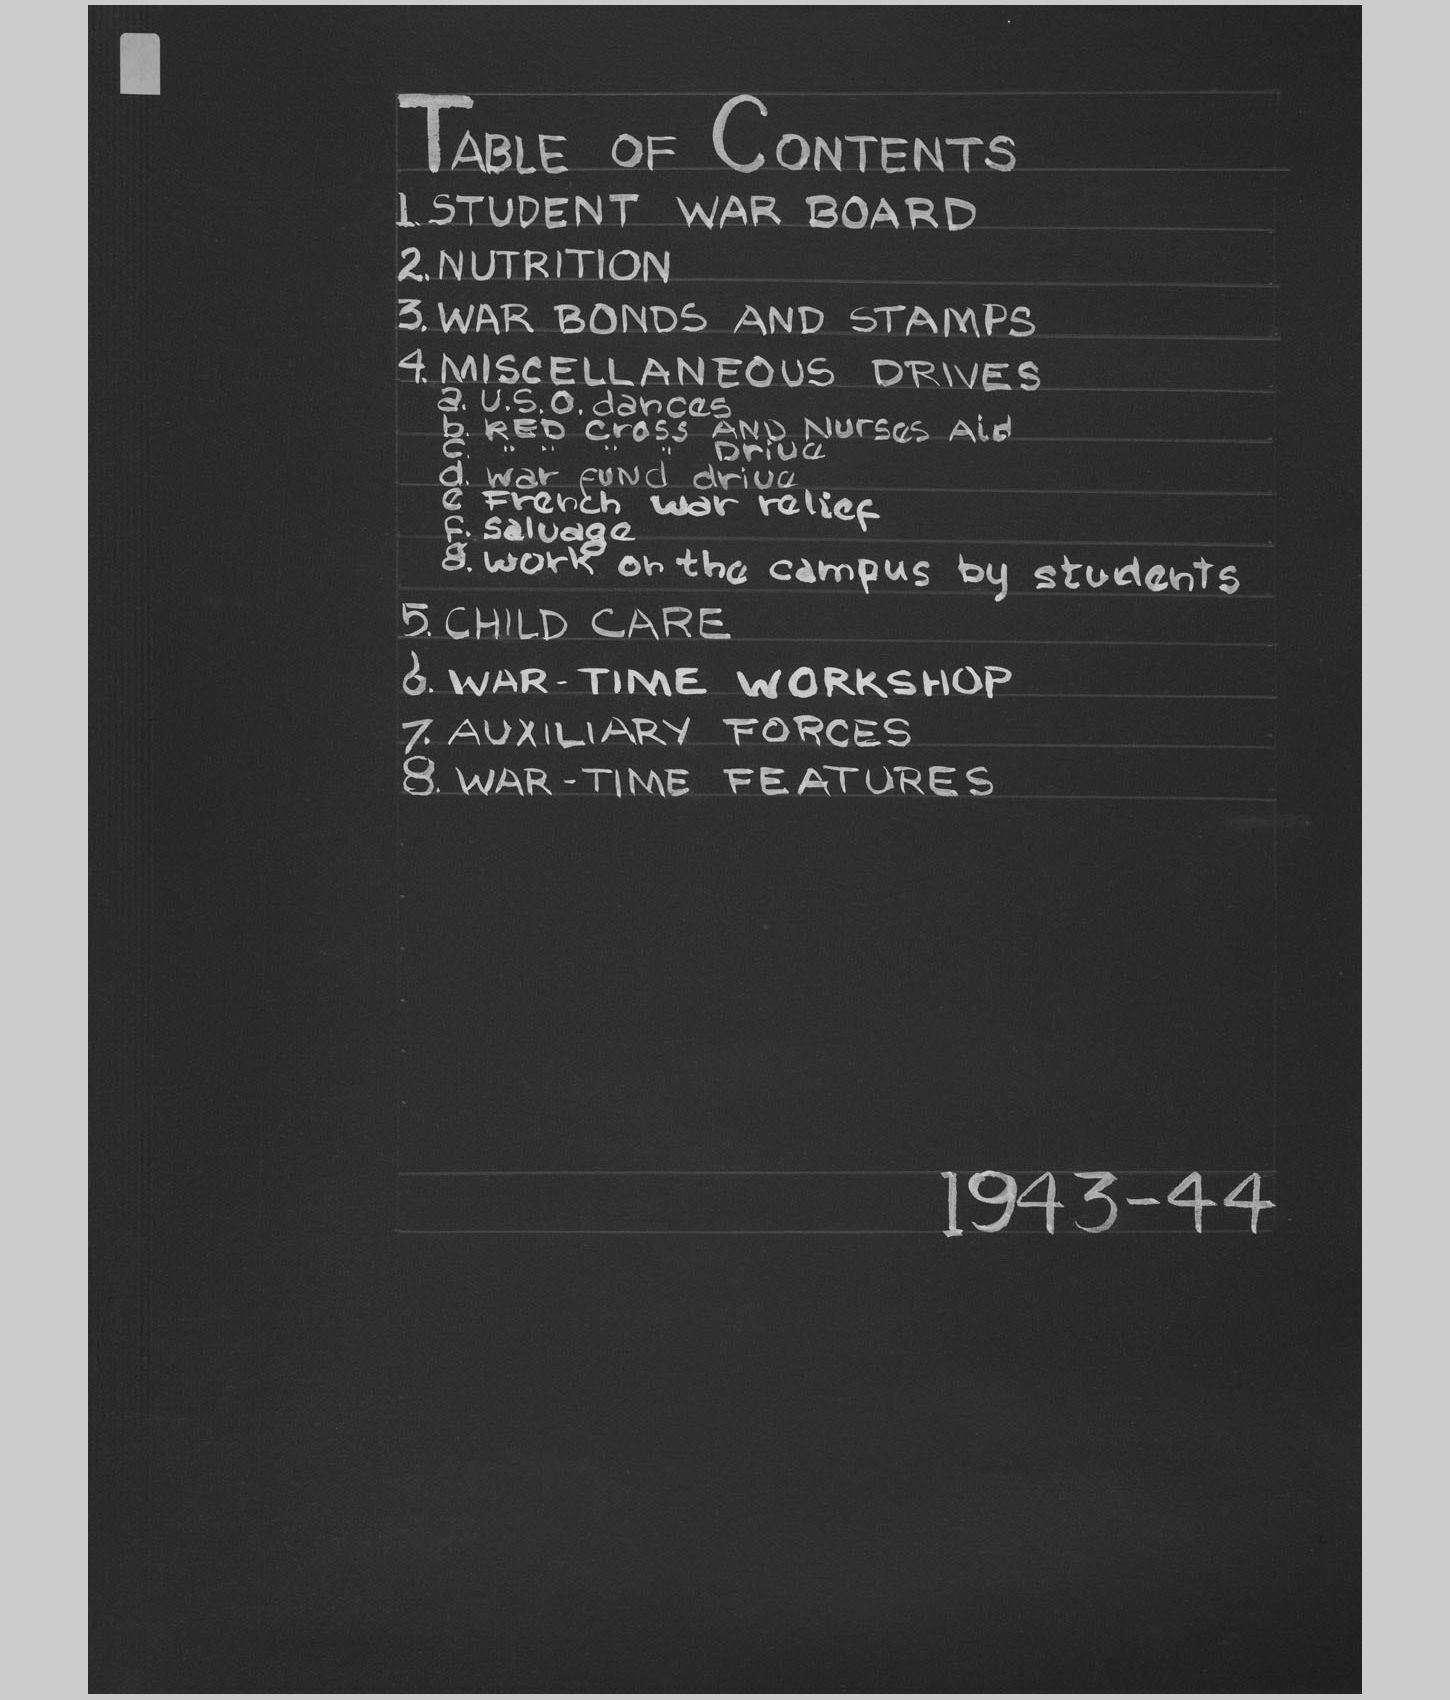 TABLE OF CONTENTS
1. STUDENT WAR BOARD
2. NUTRITION
3. WAR BONDS AND STAMPS
4. MISCELLANEOUS DRIVES
a. U.S.O. dances
b. RED Cross AND Nurses Aid
c. " " " " Drive
d. war fund drive
e French war relief
f. salvage
g. work on the campus by students
5. CHILD CARE
6. WAR-TIME WORKSHOP
7. AUXILIARY FORCES
8. WAR-TIME FEATURES
1943-44